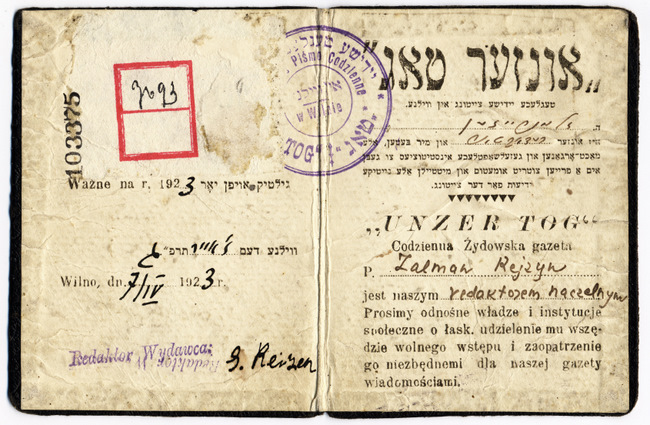 103375
Pismo Codzienne
w Wilnie
TOG
Ważne na r. 1923 גילטיק אויפן יאָר
ווילנע דעם
Wilno, dn. 7/IV 1923 r.
Redaktor Wydawca:
Redaktor
„אונזער טאָג"
טעגלעכע יידישע צייטונג אין ווילנע.
ה.
איז אונזער און מיר בעטען, אלע
מאכט־ארגאנען און געזעלשאפטלעכע אינסטיטוציעס צו געבן
אים א פרייען צוטריט אומעטום און מיטטיילן אלע נויטיקע
ידיעות פאר דער צייטונג.
„UNZER TOG“
Codzienna Żydowska gazeta
P. Zalman Rejzyn
jest naszym redaktorem naczelnym
Prosimy odnośne władze i instytucje
społeczne o łask. udzielenie mu wszę-
dzie wolnego wstępu i zaopatrzenie
go niezbędnemi dla naszej gazety
wiadomościami.